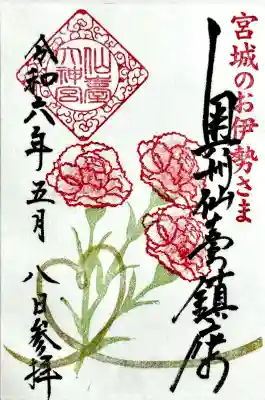 宮城のお伊勢さま
奥州仙臺鎮座
仙臺大神宮
令和六年五月八日参拝